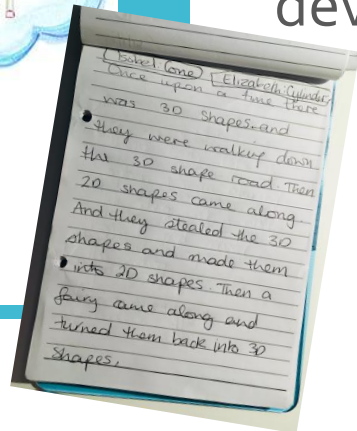 dev
Isobel: Cone Elizabeth: Cylinder
Once upon a time there
was 3D shapes and
they were walking down
the 3D shape road Then
2D shapes came along.
And they stealed the 3D
shapes and made them
into 2D shapes. Then a
fairy came along and
turned them back into 3D
shapes.